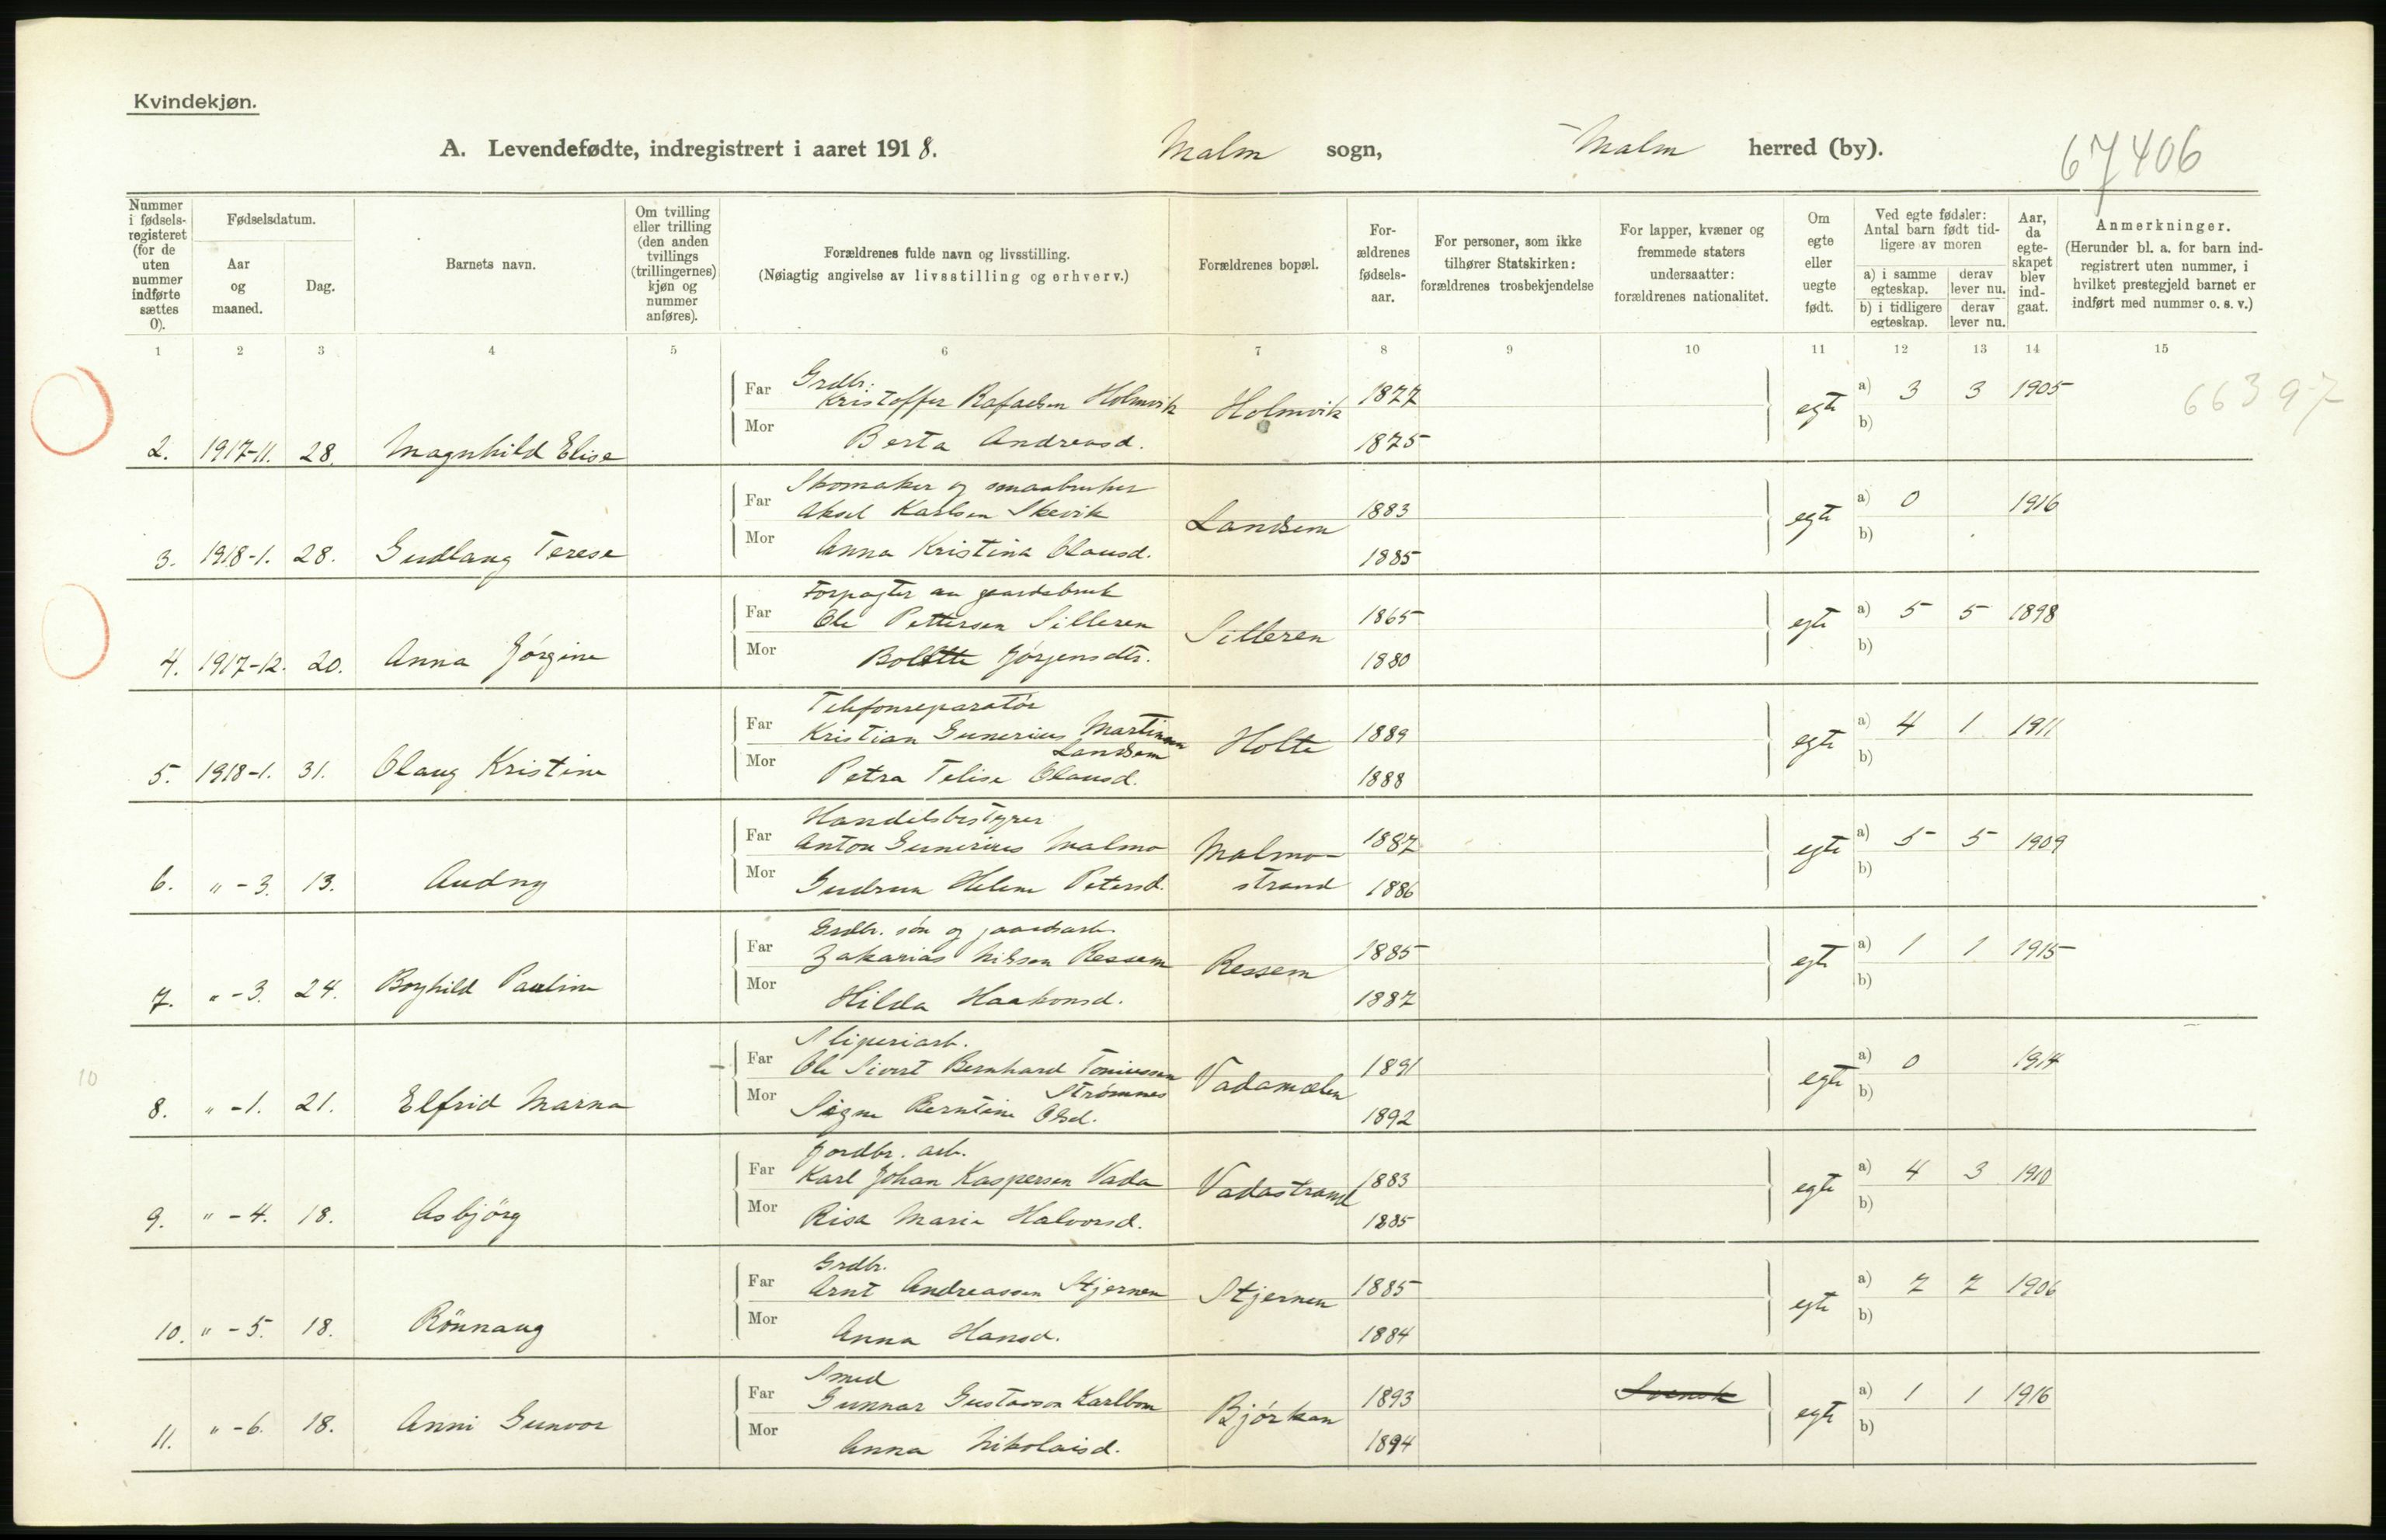 Kvindekjøn.
A. Levendefødte, indregistrert i aaret 1918. Malm sogn, Malm herred (by). 67406
Nummer i fødselsregisteret (for de uten nummer indførte sættes 0).
Fødselsdatum.
Aar og maaned.
Dag.
Barnets navn.
Om tvilling eller trilling (den anden tvillings (trillingernes) kjøn og nummer anføres).
Forældrenes fulde navn og livsstilling.
(Nøiagtig angivelse av livsstilling og erhverv.)
Forældrenes bopæl.
Forældrenes fødselsaar.
For personer, som ikke tilhører Statskirken: forældrenes trosbekjendelse
For lapper, kvæner og fremmede staters undersaatter: forældrenes nationalitet.
Om egte eller uegte født.
Ved egte fødsler: Antal barn født tidligere av moren
a) i samme egteskap. derav lever nu.
b) i tidligere egteskap. derav lever nu.
Aar, da egteskapet blev indgaat.
Anmerkninger.
(Herunder bl. a. for barn indregistrert uten nummer, i hvilket prestegjeld barnet er indført med nummer o. s. v.)
1 2 3 4 5 6 7 8 9 10 11 12 13 14 15
Grdbr:
Far Kristoffer Rafaelsen Holmvik Holmvik 1877 egte a) 3 3 1905 66397
2. 1917-11. 28. Magnhild Elise Mor Berta Andreasd. 1875 b)
Skomaker og smaabruker
Far Aksel Karlsen Skevik Landsem 1883 egte a) 0 1916
3. 1918-1. 28. Gudlaug Terese Mor Anna Kristina Olausd. 1885 b)
Forpagter av gaardsbruk
Far Ole Pettersen Silleren Silleren 1865 egte a) 5 5 1898
4. 1917-12. 20. Anna Jørgine Mor Bolette Jørgensdtr. 1880 b)
Telefonreparatør
Far Kristian Gunerius Martinsen Landsem Holte 1889 egte a) 4 1 1911
5. 1918-1. 31. Olaug Kristine Mor Petra Telise Olausd. 1888 b)
Handelsbestyrer
Far Anton Gunerius Malmo Malmostrand 1887 egte a) 5 5 1909
6. " -3. 13. Audny Mor Gudrun Helene Petersd. 1886 b)
Grdbr. søn og gaardsarb.
Far Zakarias Nilsen Ressem Ressem 1885 egte a) 1 1 1915
7. " -3. 24. Borghild Pauline Mor Hilda Haakonsd. 1887 b)
Sliperiarb.
Far Ole Sivert Bernhard Toniussen Strømnes 1891 egte a) 0 1914
10
8. " -1. 21. Elfrid Marna Mor Signe Berntine Olsd. 1892 b)
Jordbr. arb.
Far Karl Johan Kaspersen Vada Vadastrand 1883 egte a) 4 3 1910
9. " -4. 18. Asbjörg Mor Risa Marie Halvorsd. 1885 b)
Grdbr.
Far Arnt Andreassen Stjernen Stjernen 1885 egte a) 7 7 1906
10. " -5. 18. Rönnaug Mor Anna Hansd. 1884 b)
Smed
Far Gunnar Gustavson Karlbom Bjørkan 1893 Svensk egte a) 1 1 1916
11. " -6. 18. Anni Gunvor Mor Anna Nikolaisd. 1894 b)